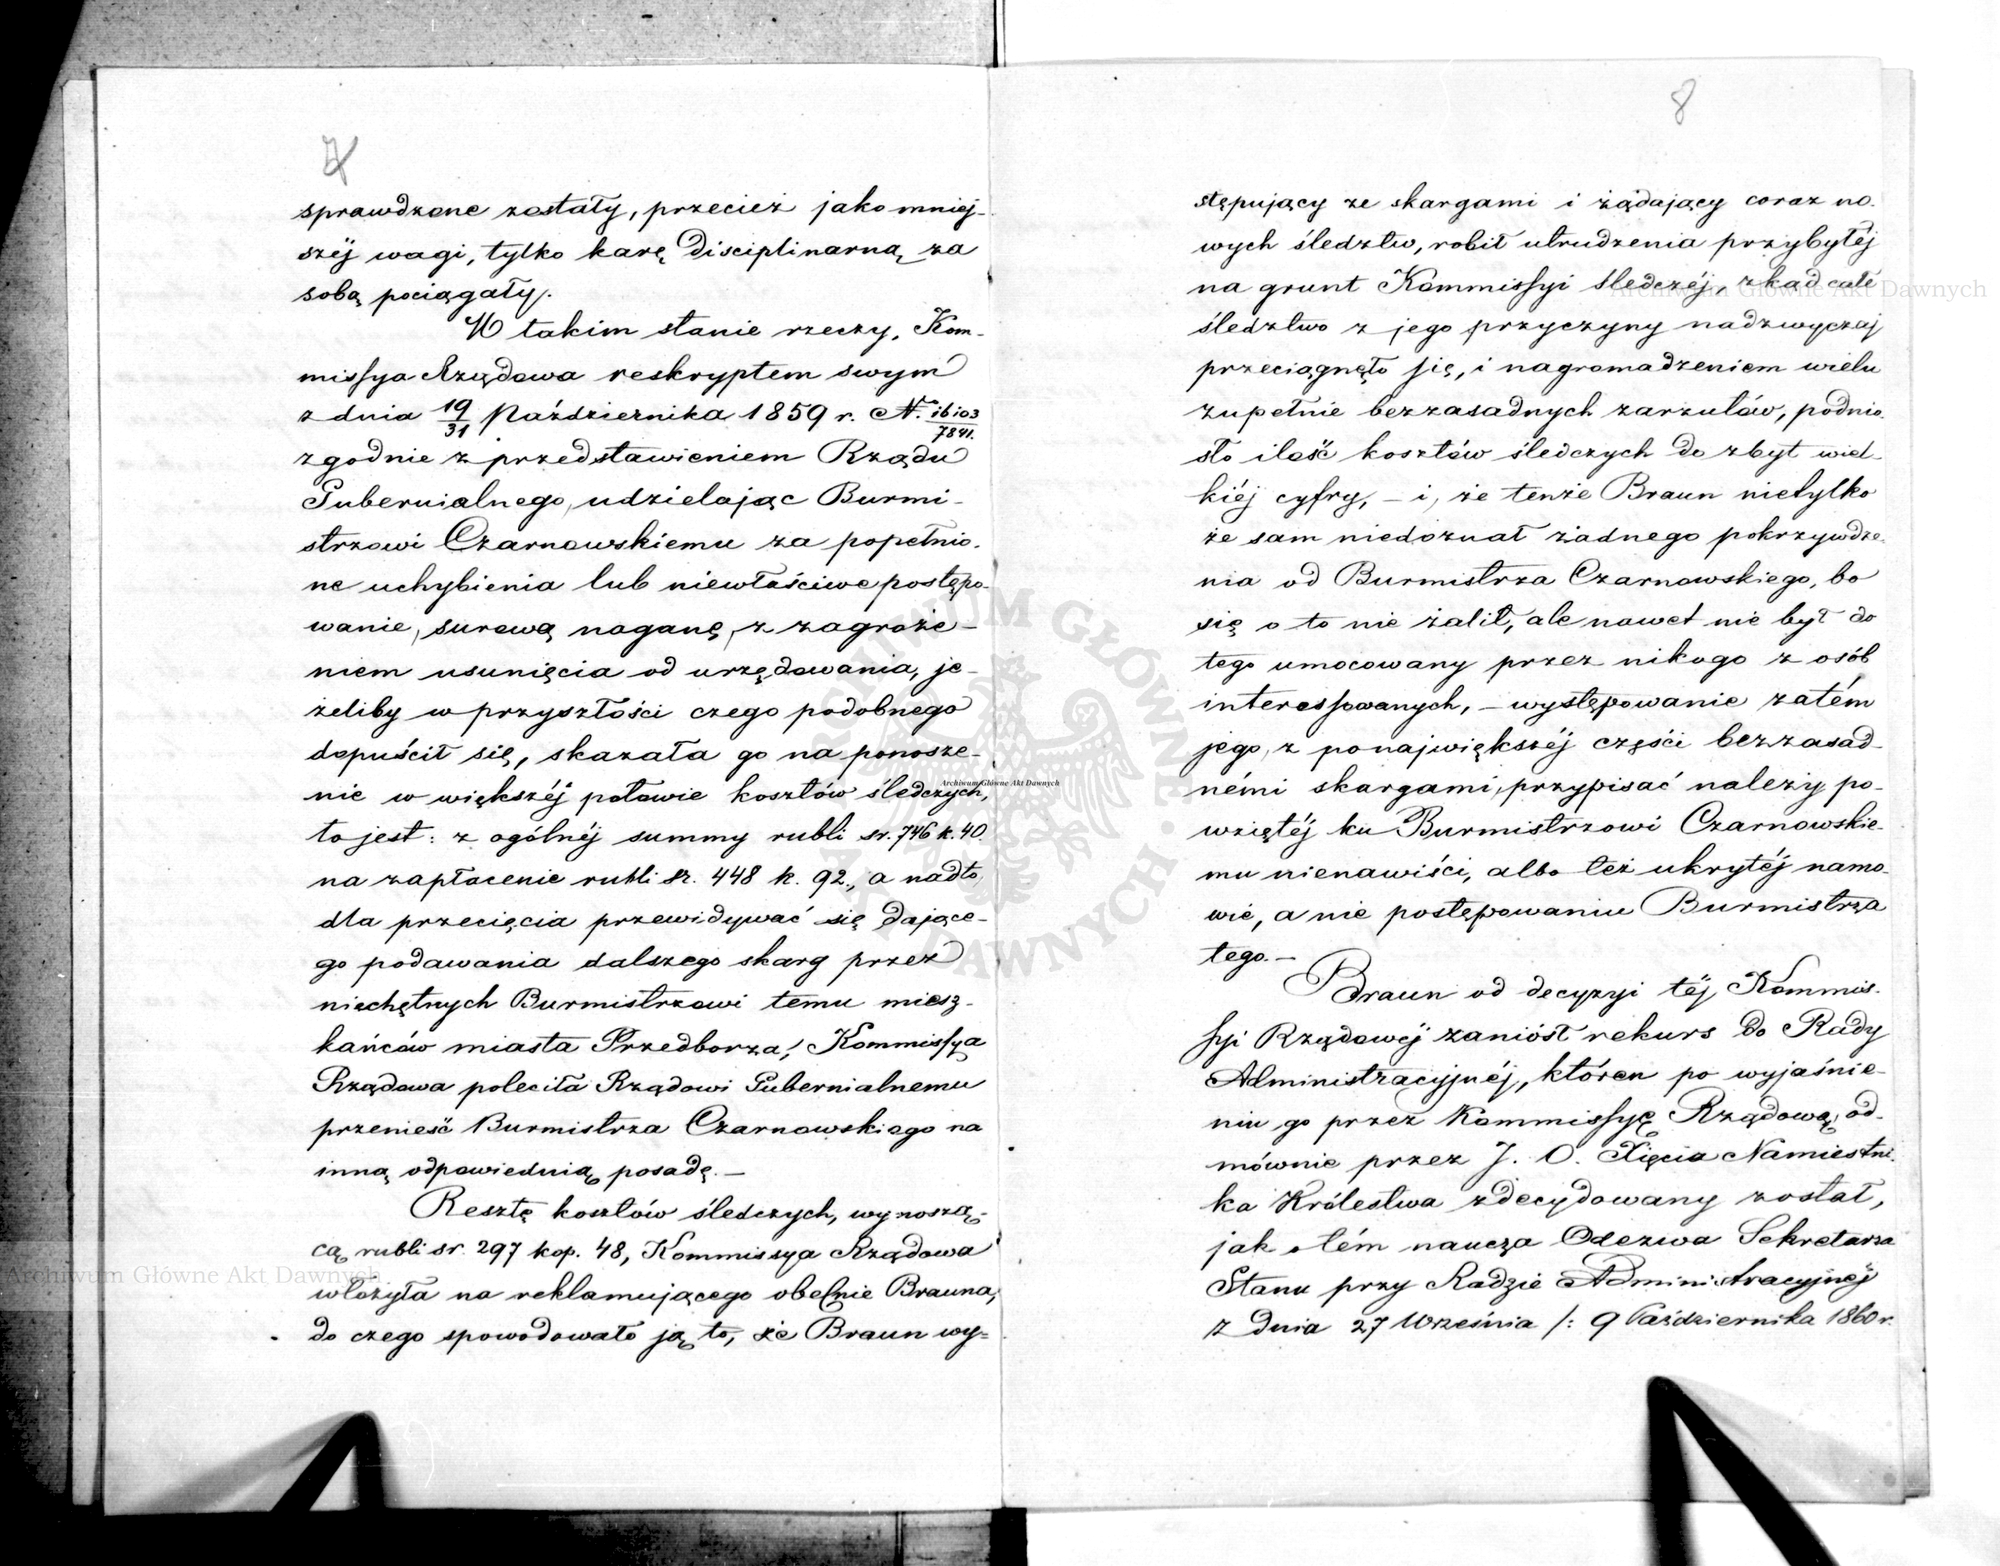 7
sprawdzone zostały, przecież jako mniej-
széj wagi, tylko karę disciplinarną za
sobą pociągały.
W takim stanie rzeczy, Kom-
missya Rządowa reskryptem swym
z dnia 19/31 Października 1859 r. N. 16103/7841.
zgodnie z przedstawieniem Rządu
Gubernialnego, udzielając Burmi-
strzowi Czarnowskiemu za popełnio-
ne uchybienia lub niewłaściwe postępo-
wanie, surową naganę, z zagroże-
niem usunięcia od urzędowania, je-
żeliby w przyszłości czego podobnego
dopuścił się, skazała go na ponosze-
nie w większéj połowie kosztów śledczych,
to jest: z ogólnéj summy rubli sr. 746 k. 40.
na zapłacenie rubli sr. 448 k. 92., a nadto,
dla przecięcia przewidywać się dające-
go podawania dalszego skarg przez
niechętnych Burmistrzowi temu miesz-
kańców miasta Przedborza, Kommissya
Rządowa poleciła Rządowi Gubernialnemu
przenieść Burmistrza Czarnowskiego na
inną odpowiednią posadę. —
Resztę kosztów śledczych, wynoszą-
cą rubli sr. 297 kop. 48, Kommissya Rządowa
włożyła na reklamującego obecnie Brauna,
do czego spowodowało ją to, że Braun wy=
8
stępujący ze skargami i żądający coraz no-
wych śledztw, robił utrudzenia przybyłéj
na grunt Kommissyi Śledczéj, zkąd całe
śledztwo z jego przyczyny nadzwyczaj
przeciągnęło się, i nagromadzeniem wielu
zupełnie bezzasadnych zarzutów, podnio-
sło ilość kosztów śledczych do zbyt wiel-
kiéj cyfry, — i, że tenże Braun nietylko
że sam niedoznał żadnego pokrzywdze-
nia od Burmistrza Czarnowskiego, bo
się o to nie żalił, ale nawet nie był do
tego umocowany przez nikogo z osób
interessowanych, — występowanie zatém
jego, z ponajwiększéj części bezzasad-
némi skargami, przypisać należy po-
wziętéj ku Burmistrzowi Czarnowskie-
mu nienawiści, albo też ukrytéj namo-
wie, a nie postępowaniu Burmistrza
tego. —
Braun od decyzyi téj Kommis-
syi Rządowéj zaniósł rekurs do Rady
Administracyjnéj, któren po wyjaśnie-
niu go przez Kommissyę Rządową, od-
mównie przez J. O. Xięcia Namiestni-
ka Królestwa zdecydowany został,
jak o tém naucza Odezwa Sekretarza
Stanu przy Radzie Administracyjnéj
z dnia 27 Września /: 9 Października 1860 r.
Archiwum Główne Akt Dawnych
Archiwum Główne Akt Dawnych
Archiwum Główne Akt Dawnych
ARCHIWUM GŁÓWNE AKT DAWNYCH